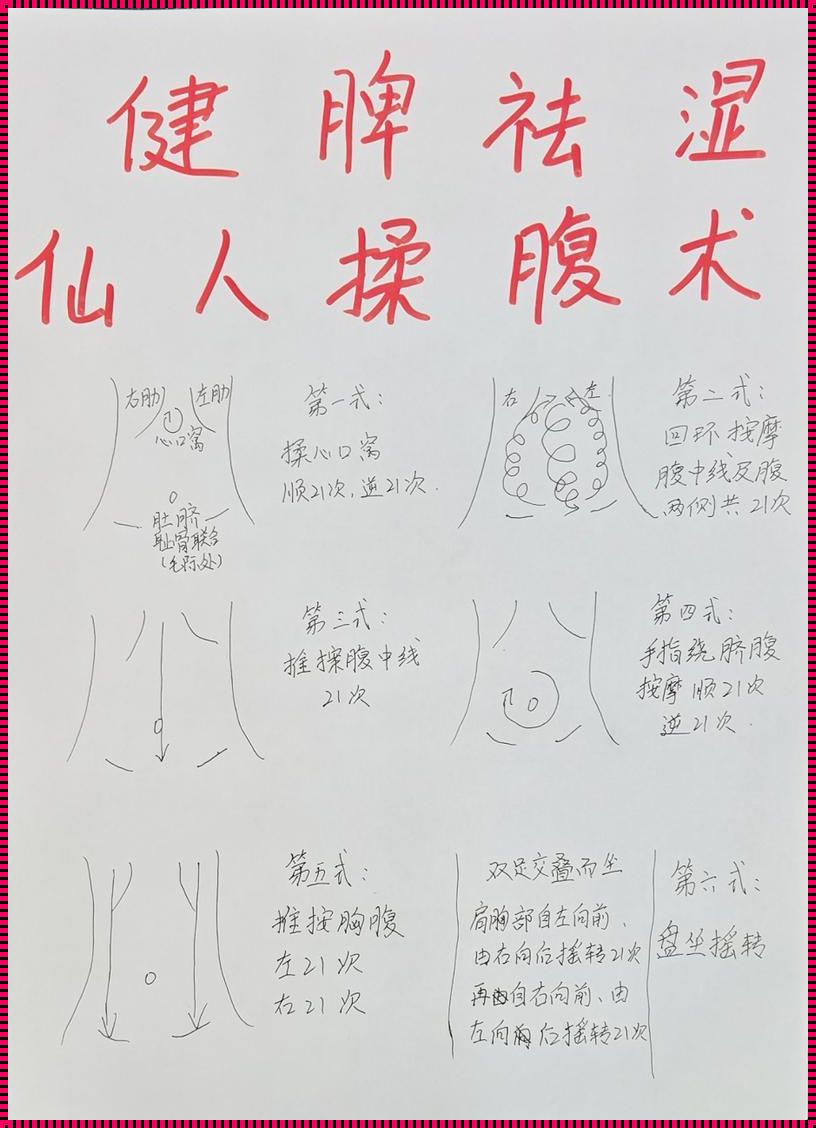 健脾祛湿
仙人揉腹术
右肋
左肋
心口窝
肚脐
耻骨联合
(毛际处)
第一式:
揉心口窝
顺21次,逆21次.
右
左
第二式:
回环按摩
腹中线及腹
两侧共21次
第三式:
推揉腹中线
21次
第四式:
手指绕脐腹
按摩顺21次
逆21次.
第五式:
推按胸腹
左21次
右21次
双足交叠而坐
肩胸部自左向前、
由右向后摇转21次
再自右向前、由
左向后摇转21次
第六式:
盘坐摇转